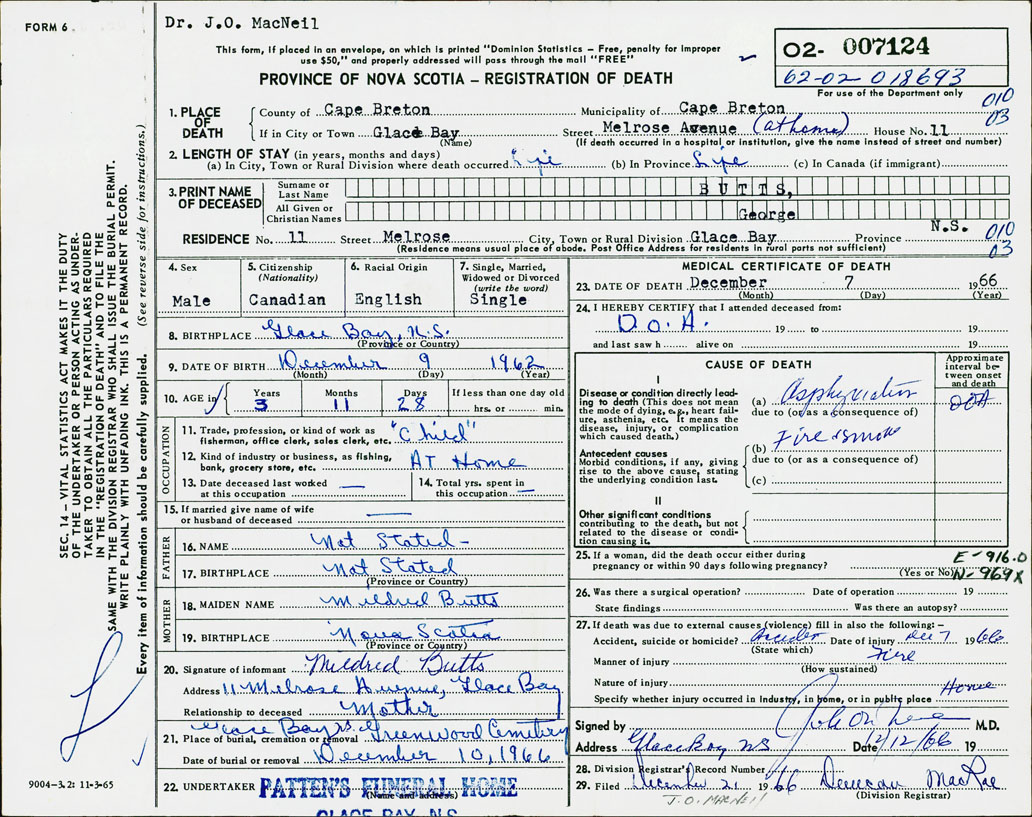 FORM 6
Dr. J.O. MacNeil
This form, if placed in an envelope, on which is printed "Dominion Statistics – Free, penalty for improper
use $50," and properly addressed will pass through the mail "FREE"
PROVINCE OF NOVA SCOTIA – REGISTRATION OF DEATH
02- 007124
62-02 018693
For use of the Department only
010
03
1. PLACE OF DEATH
County of Cape Breton Municipality of Cape Breton
If in City or Town Glace Bay Street Melrose Avenue (at home) House No. 11
(Name) (If death occurred in a hospital or institution, give the name instead of street and number)
2. LENGTH OF STAY (in years, months and days)
(a) In City, Town or Rural Division where death occurred Life (b) In Province Life (c) In Canada (if immigrant)
3. PRINT NAME OF DECEASED
Surname or Last Name BUTTS,
All Given or Christian Names George
RESIDENCE No. 11 Street Melrose City, Town or Rural Division Glace Bay Province N.S.
010
03
(Residence means usual place of abode. Post Office Address for residents in rural parts not sufficient)
4. Sex
Male
5. Citizenship (Nationality)
Canadian
6. Racial Origin
English
7. Single, Married, Widowed or Divorced (write the word)
Single
8. BIRTHPLACE Glace Bay, N.S.
(Province or Country)
9. DATE OF BIRTH December 9 1962
(Month) (Day) (Year)
10. AGE in Years 3 Months 11 Days 28 If less than one day old
hrs. or min.
OCCUPATION
11. Trade, profession, or kind of work as
fisherman, office clerk, sales clerk, etc. "Child"
12. Kind of industry or business, as fishing,
bank, grocery store, etc. AT Home
13. Date deceased last worked
at this occupation —
14. Total yrs. spent in
this occupation —
15. If married give name of wife
or husband of deceased —
FATHER
16. NAME Not Stated-
17. BIRTHPLACE Not Stated
(Province or Country)
MOTHER
18. MAIDEN NAME Mildred Butts
19. BIRTHPLACE Nova Scotia
(Province or Country)
20. Signature of informant Mildred Butts
Address 11 Melrose Avenue, Glace Bay
Relationship to deceased Mother
21. Place of burial, cremation or removal Glace Bay NS. Greenwood Cemetery
Date of burial or removal December 10, 1966
22. UNDERTAKER PATTEN'S FUNERAL HOME
(Name and address)
GLACE BAY, N.S.
MEDICAL CERTIFICATE OF DEATH
23. DATE OF DEATH December 7 1966
(Month) (Day) (Year)
24. I HEREBY CERTIFY that I attended deceased from:
D.O.A. 19 to 19
and last saw h alive on 19
CAUSE OF DEATH
Approximate interval between onset and death
I
Disease or condition directly leading to death (This does not mean the mode of dying, e.g., heart failure, asthenia, etc. It means the disease, injury, or complication which caused death.)
(a) Asphyxiation DOA
due to (or as a consequence of)
Antecedent causes
Morbid conditions, if any, giving rise to the above cause, stating the underlying condition last.
(b) Fire & smoke
due to (or as a consequence of)
(c)
II
Other significant conditions
contributing to the death, but not related to the disease or condition causing it.
25. If a woman, did the death occur either during
pregnancy or within 90 days following pregnancy?
(Yes or No)
E-916.0
N-969X
26. Was there a surgical operation? Date of operation 19
State findings Was there an autopsy?
27. If death was due to external causes (violence) fill in also the following:–
Accident, suicide or homicide? Accident Date of injury Dec 7 1966
(State which)
Manner of injury Fire
(How sustained)
Nature of injury
Specify whether injury occurred in Industry, in home, or in public place Home
Signed by M.D.
Address Glace Bay NS Date 12/12/66 19
28. Division Registrar's Record Number
29. Filed December 21 1966 Duncan MacRae
(Division Registrar)
J.O. MACNEIL
SEC. 14 – VITAL STATISTICS ACT MAKES IT THE DUTY
OF THE UNDERTAKER OR PERSON ACTING AS UNDER-
TAKER TO OBTAIN ALL THE PARTICULARS REQUIRED
IN THE "REGISTRATION OF DEATH" AND TO FILE THE
SAME WITH THE DIVISION REGISTRAR WHO SHALL ISSUE THE BURIAL PERMIT.
WRITE PLAINLY WITH UNFADING INK. THIS IS A PERMANENT RECORD.
Every item of information should be carefully supplied. (See reverse side for instructions.)
9004-3.2: 11-3-65